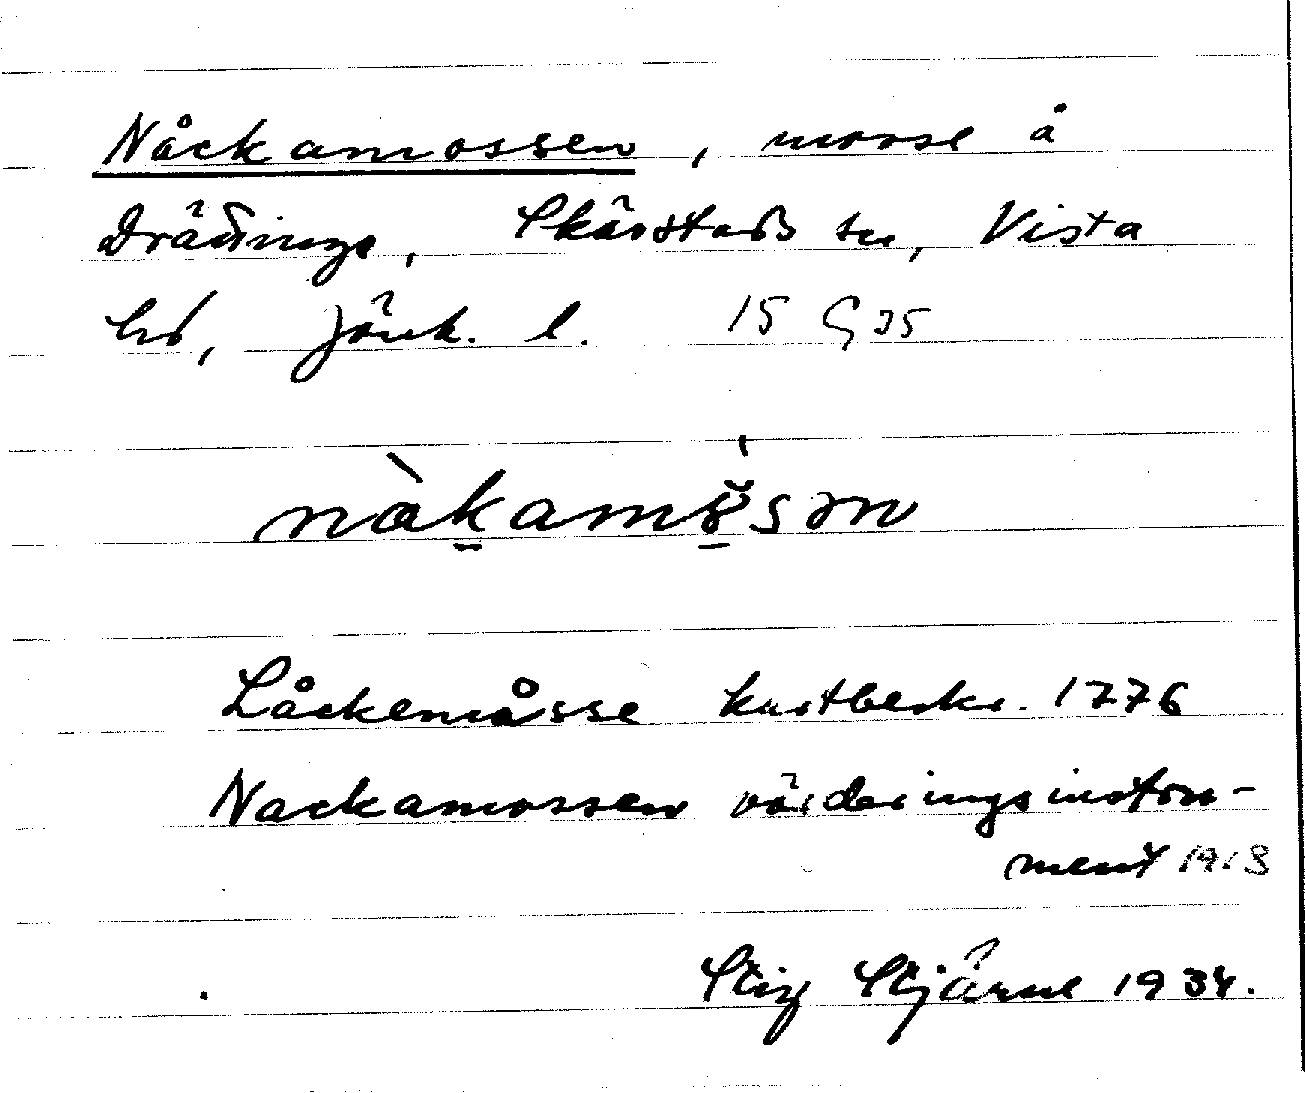 Nåckamossen, mosse å
Drättinge, Skärstads sn, Vista
hd, Jönk. l. 15 G 35
nàkamösən
Låckemåsse kartbeskr. 1776
Nackamossen värderingsinstru-
ment 1918
Stig Stjärne 1934.